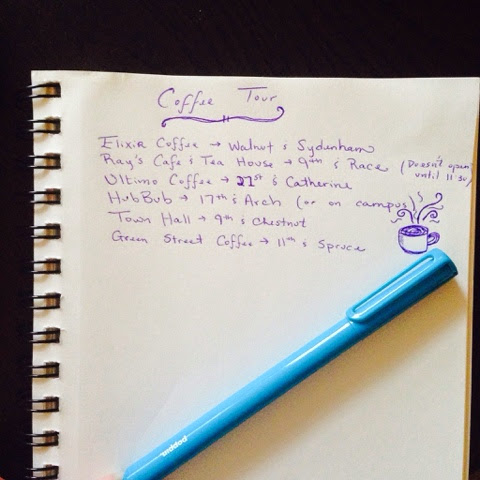 Coffee Tour
Elixir Coffee → Walnut & Sydenham
Ray's Cafe & Tea House → 9th & Race (Doesn't open until 11:30)
Ultimo Coffee → 21st & Catherine
HubBub → 17th & Arch (or on campus)
Town Hall → 9th & Chestnut
Green Street Coffee → 11th & Spruce
poppin